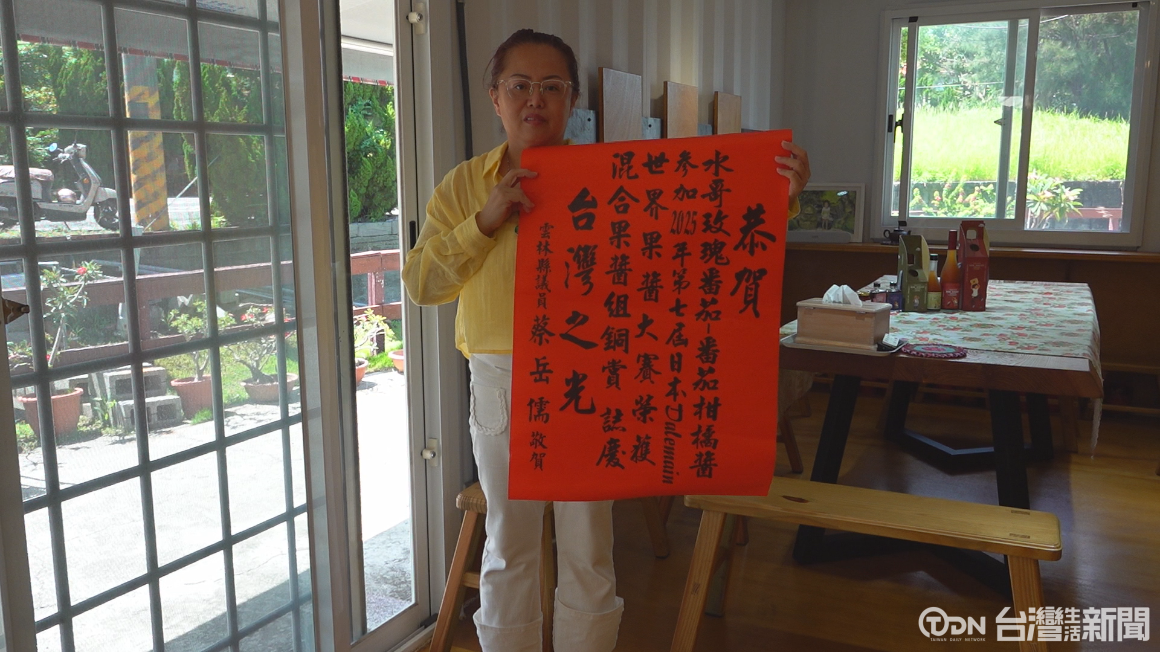 恭賀
水哥玫瑰番茄-番茄柑橘醬
參加2025年第七屆日本Dalemain
世界果醬大賽榮獲
混合果醬組銅賞 誌慶
台灣之光
雲林縣議員 蔡岳儒 敬賀
TDN 台灣生活新聞
TAIWAN DAILY NETWORK